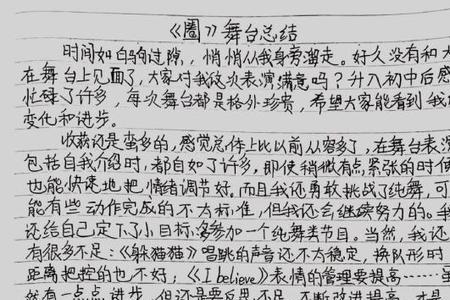 《圈》舞台总结
时间如白驹过隙,,悄悄从我身旁溜走。好久没有和大
在舞台上见面了,大家对我这次表演满意吗?升入初中后感
忙碌了许多,每次舞台都是格外珍贵,希望大家能看到我
变化和进步。
收获还是蛮多的,感觉总体上比以前从容多了,在舞台表演
包括自我介绍时,都自如了许多,即使稍微有点紧张的时候
也能快速地把情绪调节好。而且我还勇敢挑战了纯舞,可
能有些动作完成的不太标准,但我还会继续努力的。我
还给自己定下了小目标:多参加一个纯舞类节目。当然,我还
有很多不足:《躲猫猫》唱跳的声音还不太稳定,换队形时
距离把控的也不好;《I believe》表情的管理要提高……虽
然有一点点进步,但还是要反思不足,不断改进提高,才是